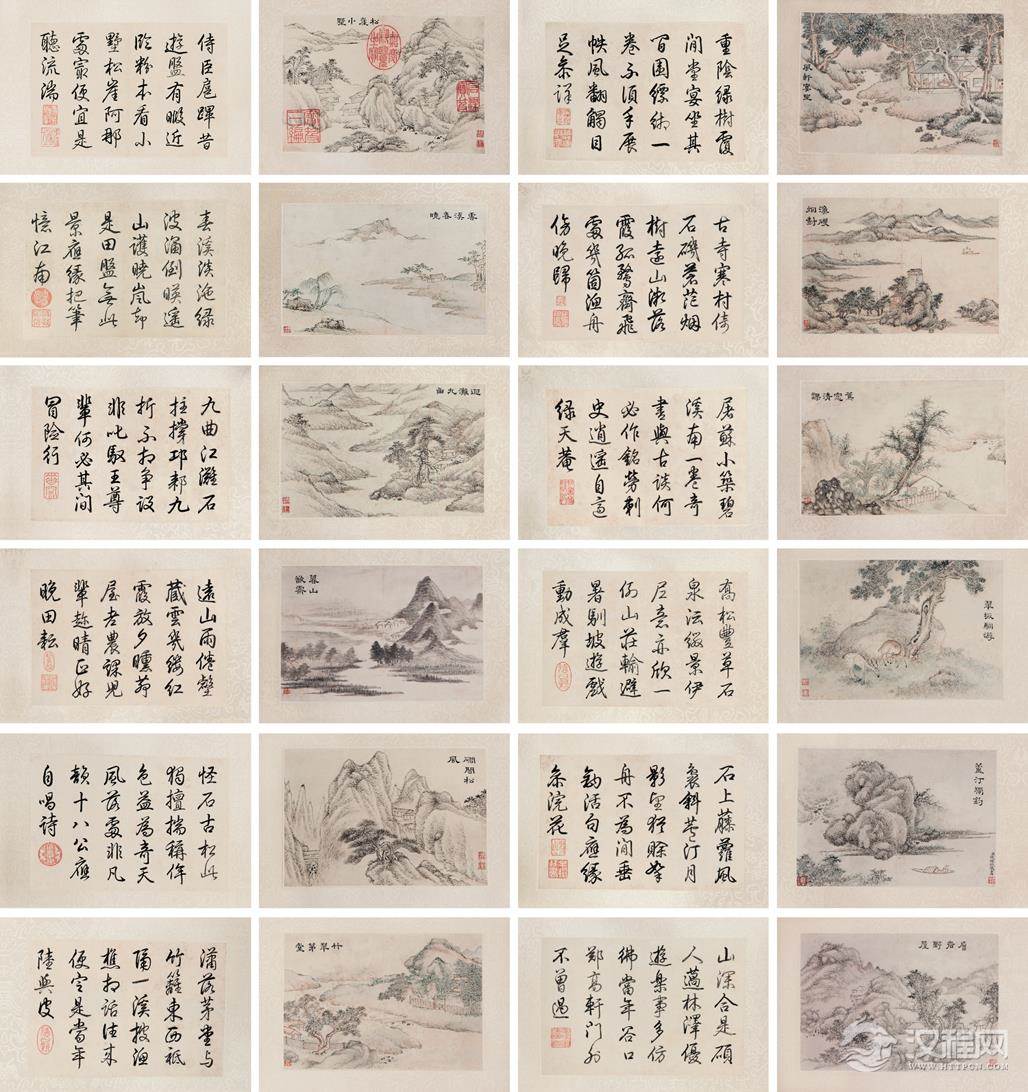 重陰綠樹覆
閒堂宴坐其
間圍縹緗一
卷不須手展
帙風翻觸目
足參詳
松崖小墅
侍臣扈蹕昔
遊盤有暇近
臨粉本看小
墅松崖阿那
處最便宜是
聽流湍
漁磯
烟樹
古寺寒村倚
石磯蒼茫烟
樹遠山微落
霞孤鶩齊飛
處幾箇漁舟
傍晚歸
雲溪春曉
春溪淡沲綠
波涵倒暎遙
山護曉嵐却
是田盤無此
景應緣把筆
憶江南
蕉窗清課
屠蘇小築碧
溪南一卷奇
書與古談何
必作銘勞刺
史逍遙自適
綠天菴
迴灘九曲
九曲江灘石
拄撐邛郲九
折不相爭設
非叱馭王尊
輩何必其間
冒險行
翠坂馴遊
喬松豐草石
泉沄綴景伊
尼意亦欣一
例山莊輸避
暑馴坡遊戲
動成羣
暮山
斂霽
遠山雨倦壑
藏雲幾縷紅
霞放夕曛茆
屋老農課兒
輩趁晴正好
晚田耘
蘆汀獨釣
石上藤蘿風
裊斜蘆汀月
影望猶賒拏
舟不為閒垂
釣活句應緣
參浣花
磵閣松
風
怪石古松此
獨擅揣稱侔
色益為奇天
風落處非凡
韻十八公應
自唱詩
層岩野屋
山深合是碩
人薖林澤優
遊樂事多仿
彿當年谷口
鄭高軒門外
不曾過
竹翠茅堂
瀟落茅堂與
竹籬東西祗
隔一溪披漁
樵相話往來
便定是當年
陸與皮
汉程网
WWW.HTTPCN.COM